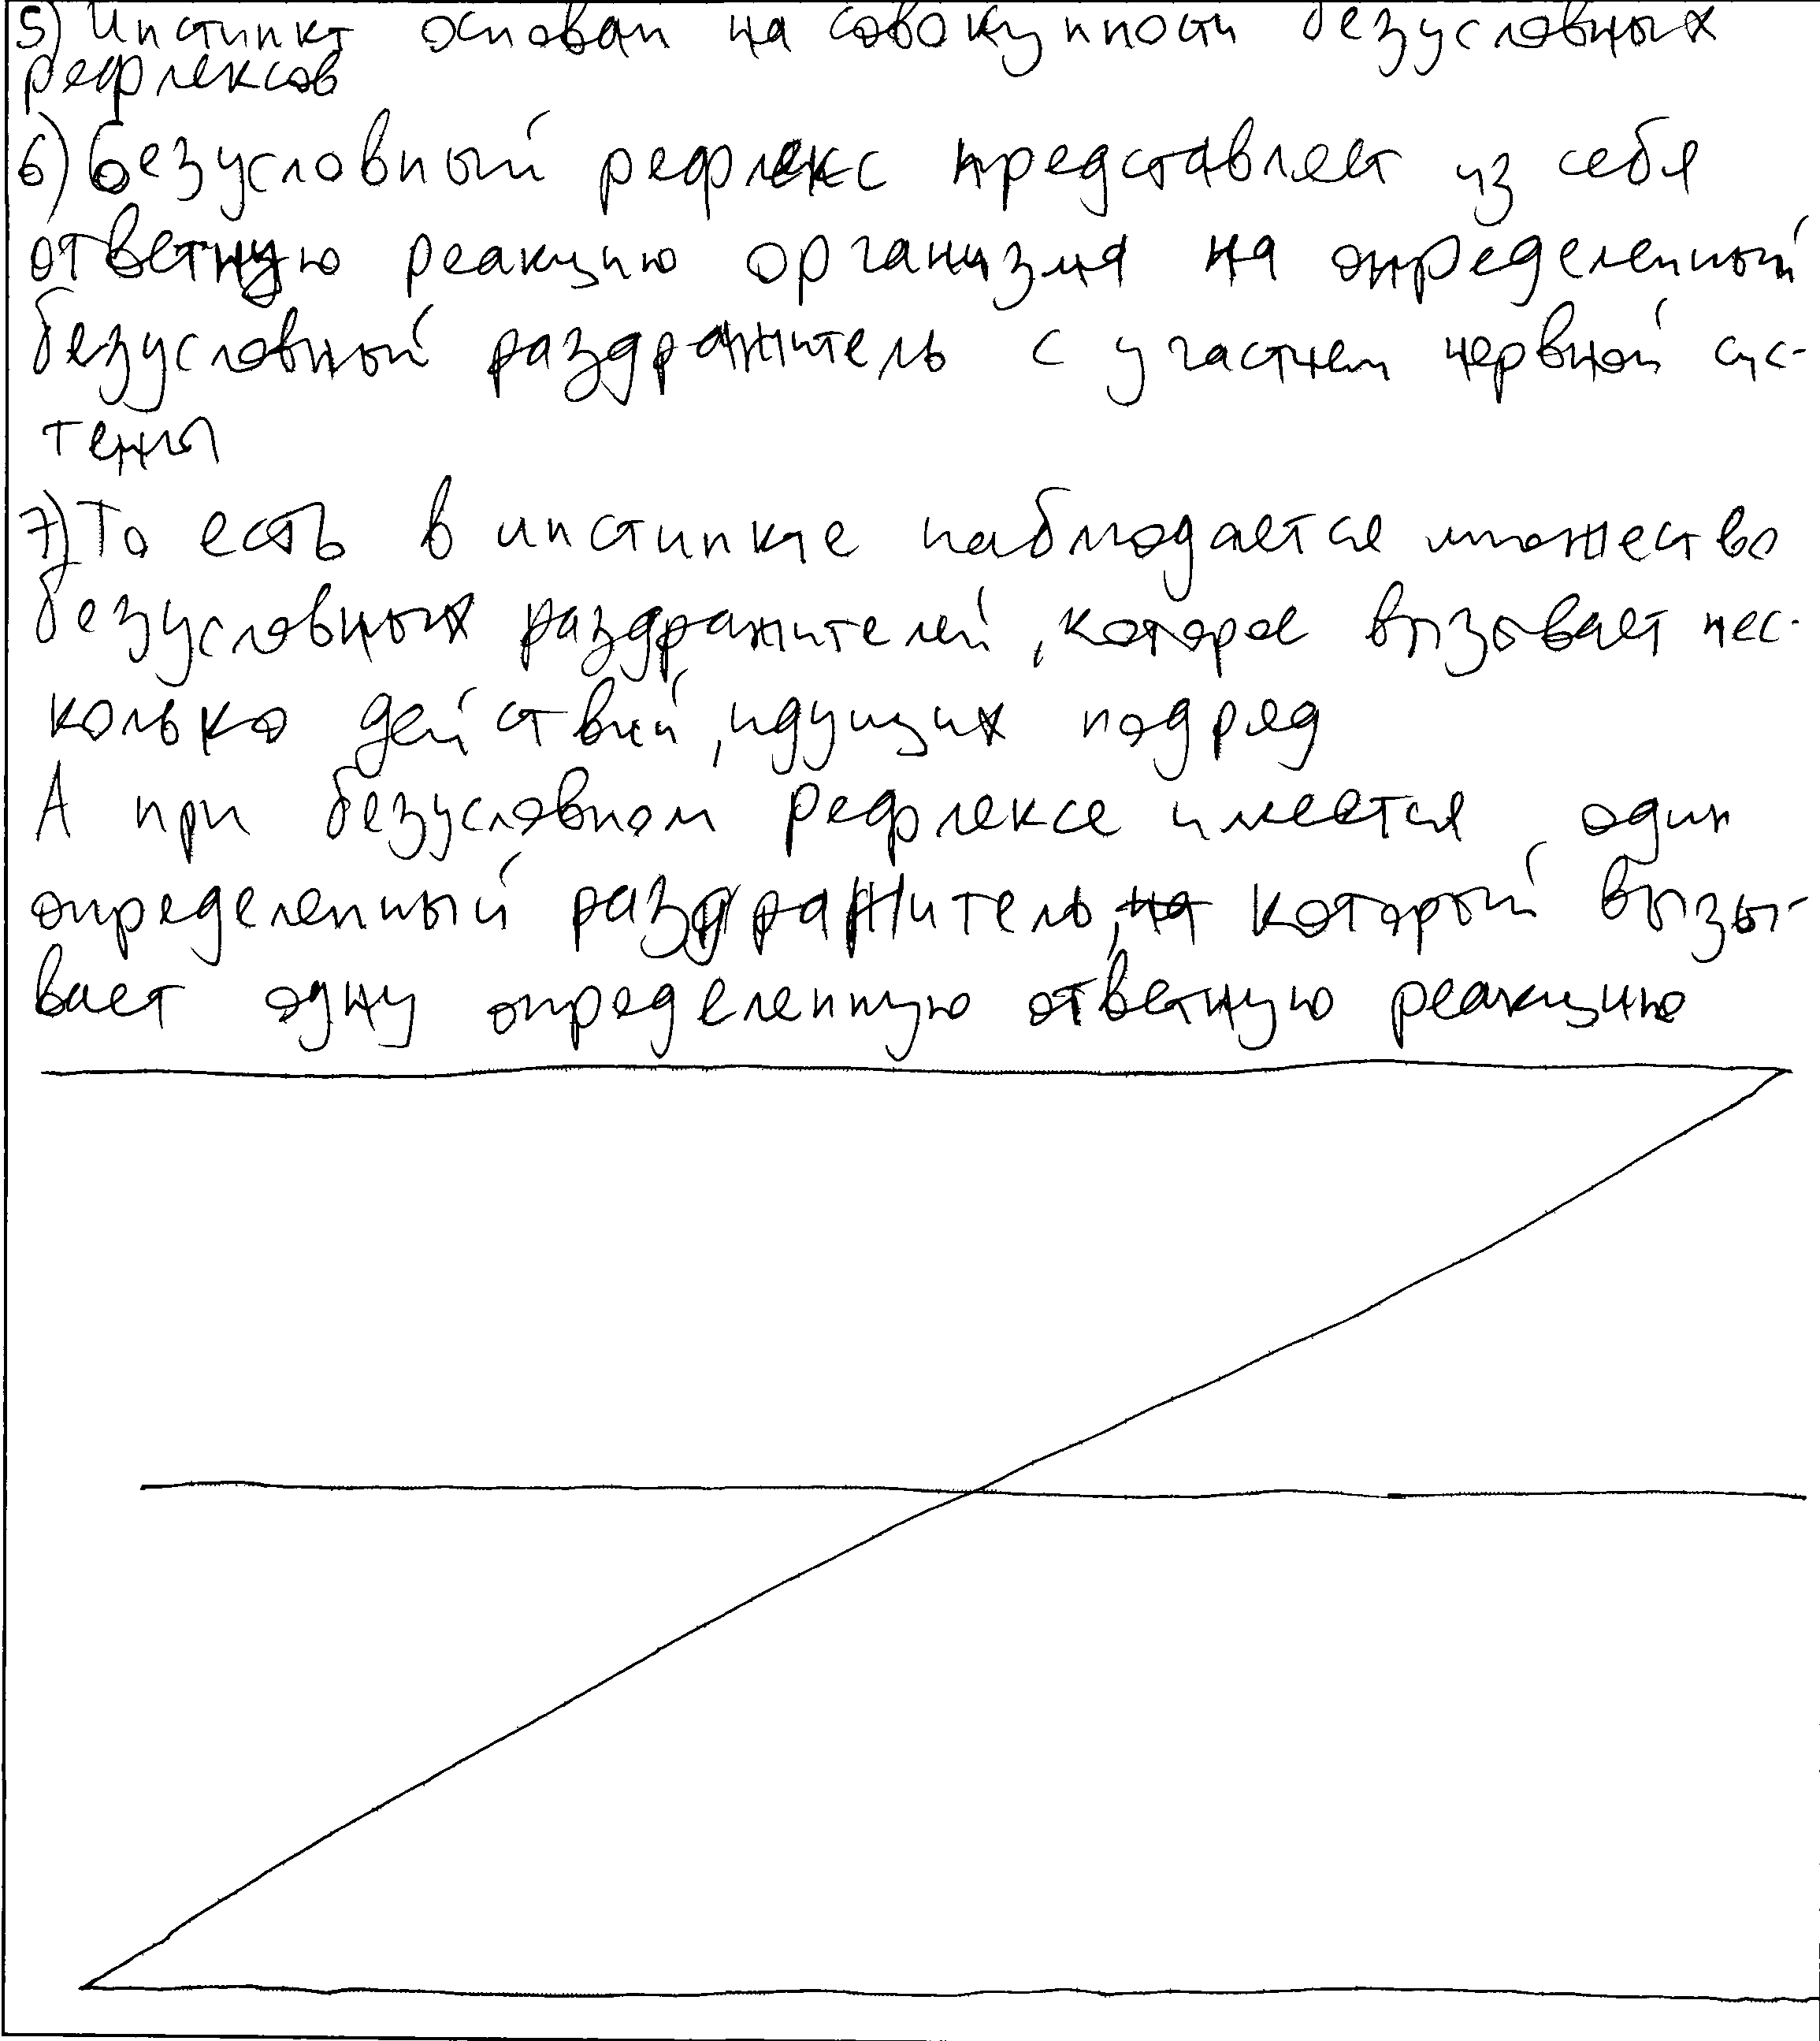 5) Инстинкт основан на совокупности безусловных
рефлексов
6) Безусловный рефлекс представляет из себя
ответную реакцию организма на определенный
безусловный раздражитель с участием нервной сис-
темы
7) То есть в инстинкте наблюдается множество
безусловных раздражителей, которое вызывает нес-
колько действий, идущих подряд
А при безусловном рефлексе имеется один
определенный раздражитель, на который вызы-
вает одну определенную ответную реакцию